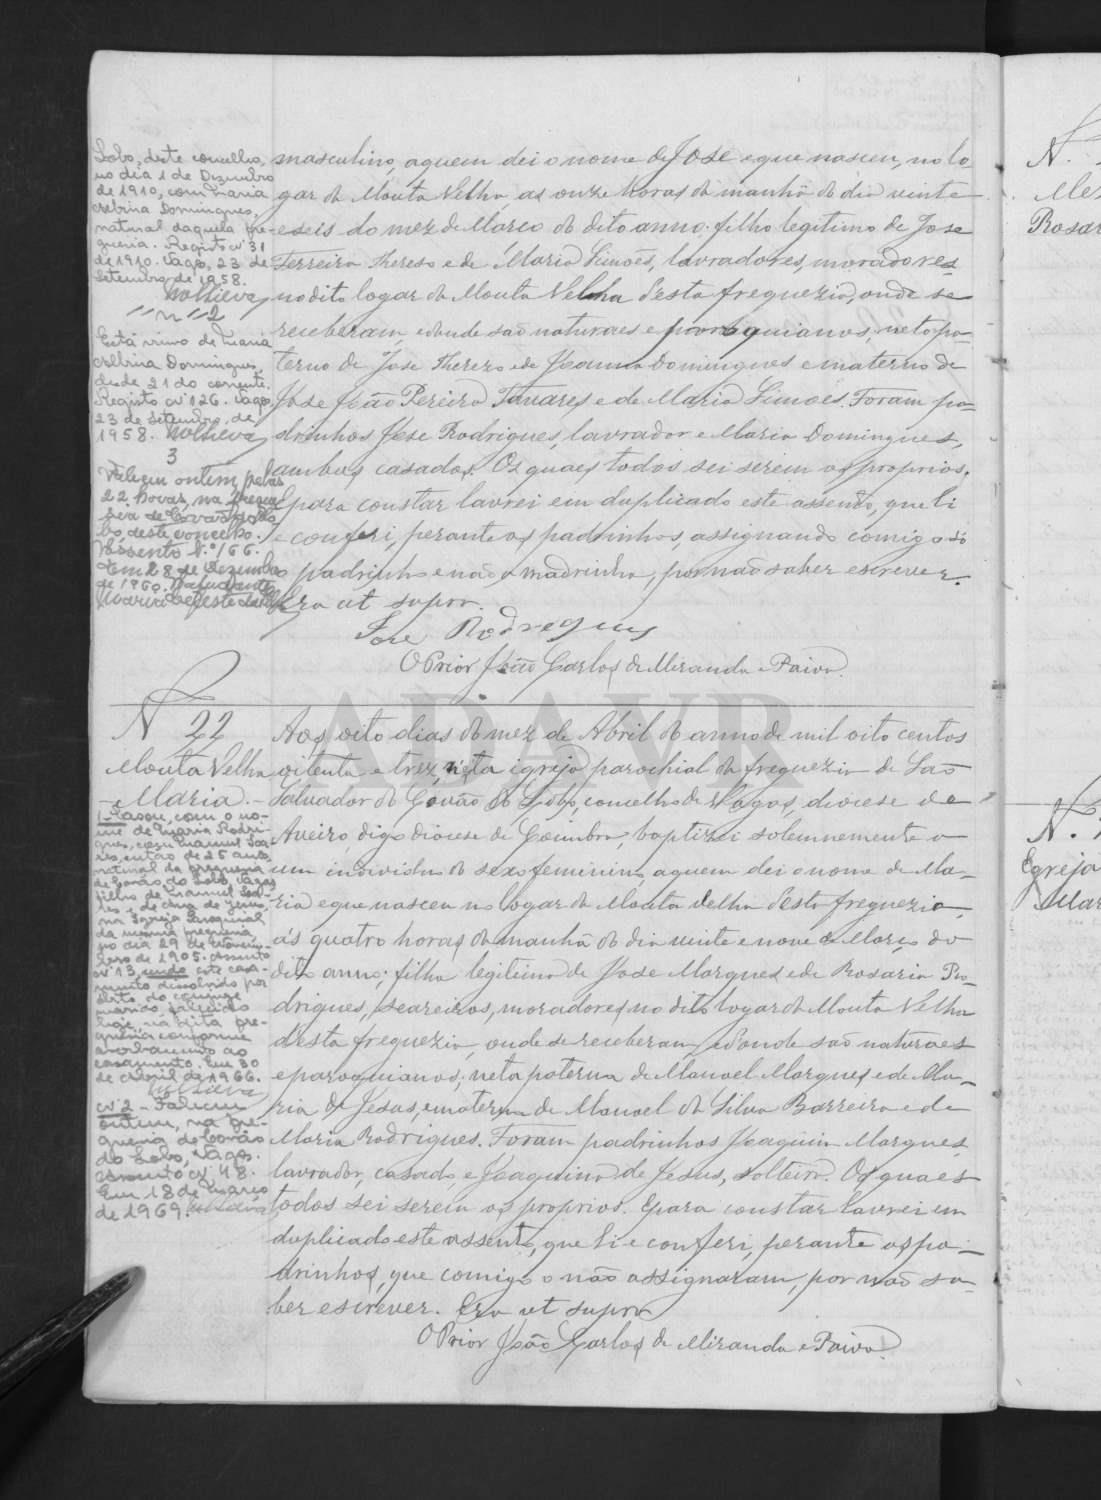 Lobo, deste concelho,
no dia 1 de Dezembro
de 1910, com Maria
Celbrina Domingues,
natural daquela fre-
guesia. Registo nº 31
de 1910. Vagos, 23 de
Setembro de 1958.
nº 2
Está viuvo de Maria
Celbrina Domingues,
desde 21 do corrente.
Registo nº 126. Vagos,
23 de Setembro de
1958.
3
Faleceu ontem pelas
22 horas, na fregue-
sia de Covão do Lo-
bo, deste concelho.
Assento N.º 166.
Em 28 de Dezembro
de 1960.
masculino, aquem dei o nome de José e que nasceu, no lo-
gar da Mouta Velha, as onze horas da manhã do dia vinte
e seis do mez de Março do dito anno: filho legitimo de Jose
Ferreira Thereso e de Maria Simões, lavradores, moradores
no dito logar da Mouta Velha d'esta freguezia, onde se
receberam, e donde são naturaes e paroquianos, neto pa-
terno de Jose Therezo e de Joanna Domingues e materno de
José João Pereira Tavares e de Maria Simões. Foram pa-
drinhos José Rodrigues, lavrador e Maria Domingues,
ambos casados. Os quaes todos sei serem os proprios.
E para constar lavrei em duplicado este assento, que li
e conferi, perante os padrinhos, assignando comigo só
o padrinho e não a madrinha, por não saber escrever.
Era ut supra.
Jose Rodregues
O Prior João Carlos de Miranda e Paiva.
N 22
Mouta Velha
Maria.
1-Casou, com o no-
me de Maria Rodri-
gues, com Manuel Soa-
res, então de 25 anos,
natural da freguesia
de Covão do Lobo, Vagos,
filho de Manuel Soa-
res e de Ana de Jesus,
na Igreja Paroquial
da mesma freguesia
no dia 29 de Novem-
bro de 1905. Assento
nº 13, sendo este casa-
mento dissolvido por
óbito do conjuge
marido, falecido
hoje, na dita fre-
guesia conforme
averbamento ao
casamento. Em 30
de Abril de 1966.
nº 2 - Faleceu
ontem, na fre-
guesia de Covão
do Lobo, Vagos.
Assento nº 48.
Em 18 de Março
de 1969.
Aos oito dias do mez de Abril do anno de mil oito centos
oitenta e trez, n'esta igreja parochial da freguezia de São
Salvador do Covão do Lobo, concelho de Vagos, diocese de
Aveiro, digo diocese de Coimbra, baptizei solemnemente a
um individuo do sexo feminino, aquem dei o nome de Ma-
ria e que nasceu no logar da Mouta Velha d'esta freguezia,
ás quatro horas da manhã do dia vinte e nove de Março do
dito anno; filha legitima de Jose Marques e de Rosaria Ro-
drigues, seareiros, moradores no dito logar da Mouta Velha
d'esta freguezia, onde se receberam e donde são naturaes
e paroquianos; neta paterna de Manoel Marques e de Ma-
ria de Jesus, e materna de Manoel da Silva Barreira e de
Maria Rodrigues. Foram padrinhos Joaquim Marques,
lavrador, casado e Joaquina de Jesus, solteira. Os quaes
todos sei serem os proprios. E para constar lavrei em
duplicado este assento, que li e conferi, perante os pa-
drinhos, que comigo o não assignaram, por não sa-
ber escrever. Era ut supra
O Prior João Carlos de Miranda e Paiva.
ADAVR
N.
Rosar
N.
Egreja
Mar